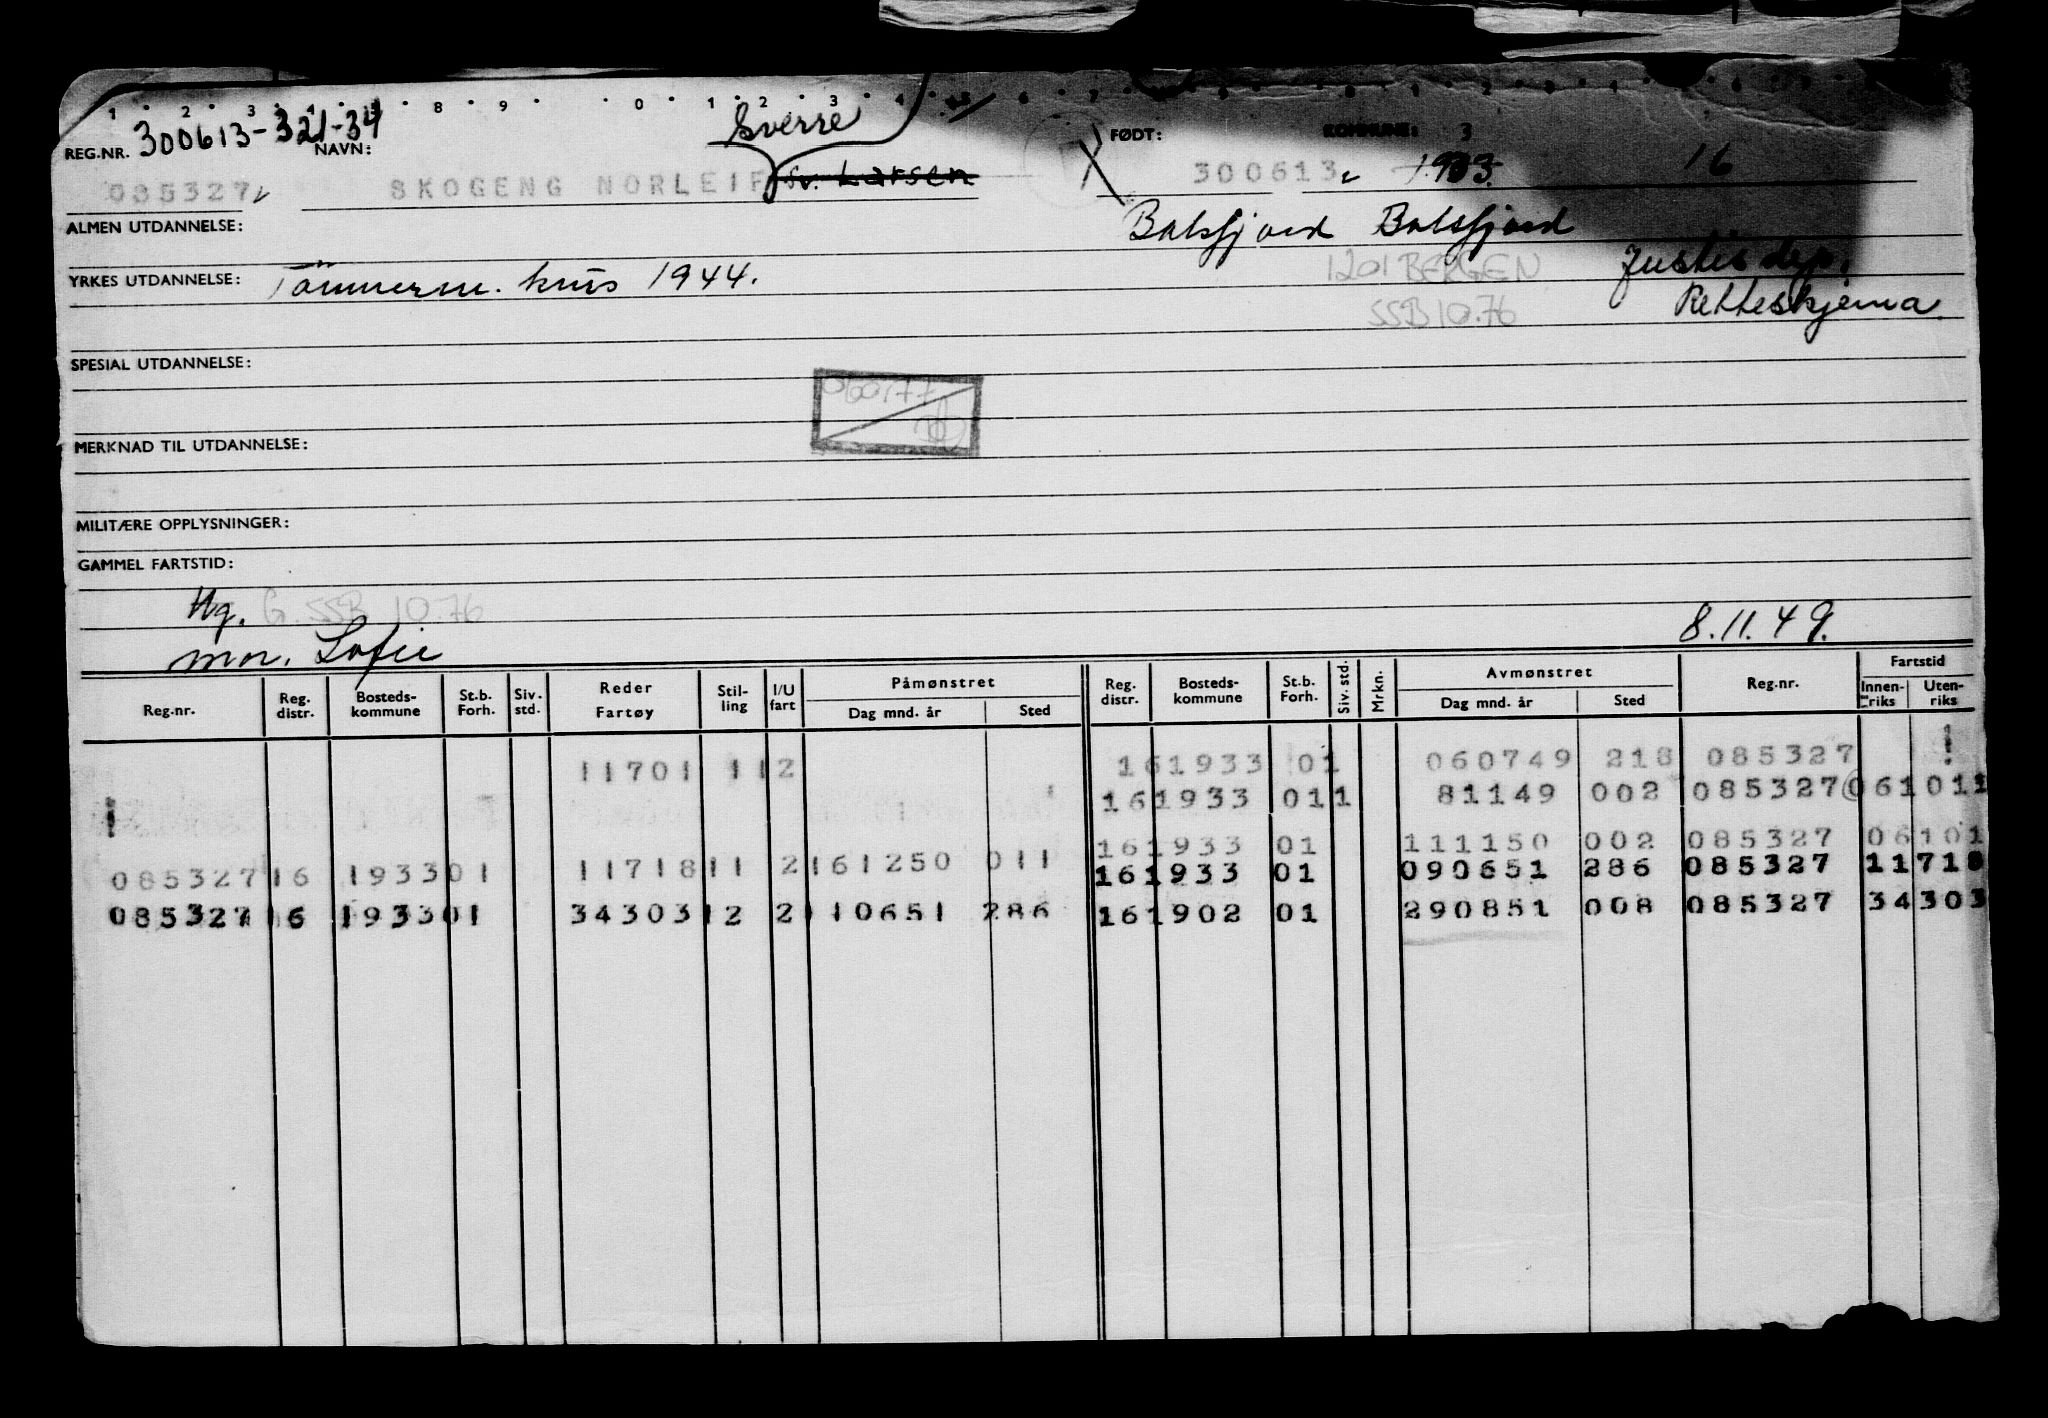 1 2 3 4 8 9 0 1 2 3 4 5 6
300613-321-34 Sverre
REG.NR. NAVN: FØDT: KOMMUNE: 3
085327 SKOGENG NORLEIF Sv. Larsen 300613 1933 16
ALMEN UTDANNELSE: Balsfjord Balsfjord
YRKES UTDANNELSE: Tömmerm. kurs 1944. 1201 BERGEN Justis dep.
SSB 10.76 Retteskjema
SPESIAL UTDANNELSE:
MERKNAD TIL UTDANNELSE:
MILITÆRE OPPLYSNINGER:
GAMMEL FARTSTID:
Ug. G. SSB 10.76
mor. Sofie 8.11.49.
Reg.nr. Reg. distr. Bosteds-kommune St.b. Forh. Siv. std. Reder Fartøy Stil-ling I/U fart Påmønstret Dag mnd. år Sted Reg. distr. Bosteds-kommune St.b. Forh. Siv. std. Mrkn. Avmønstret Dag mnd. år Sted Reg.nr. Fartstid Innen-riks Uten-riks
11701 11 2 161933 01 060749 218 085327
161933 011 81149 002 085327 061011
161933 01 111150 002 085327 06101
085327 16 1933 01 11718 11 2 161250 011 161933 01 090651 286 085327 11718
085327 16 1933 01 34303 12 2 110651 286 161902 01 290851 008 085327 34303